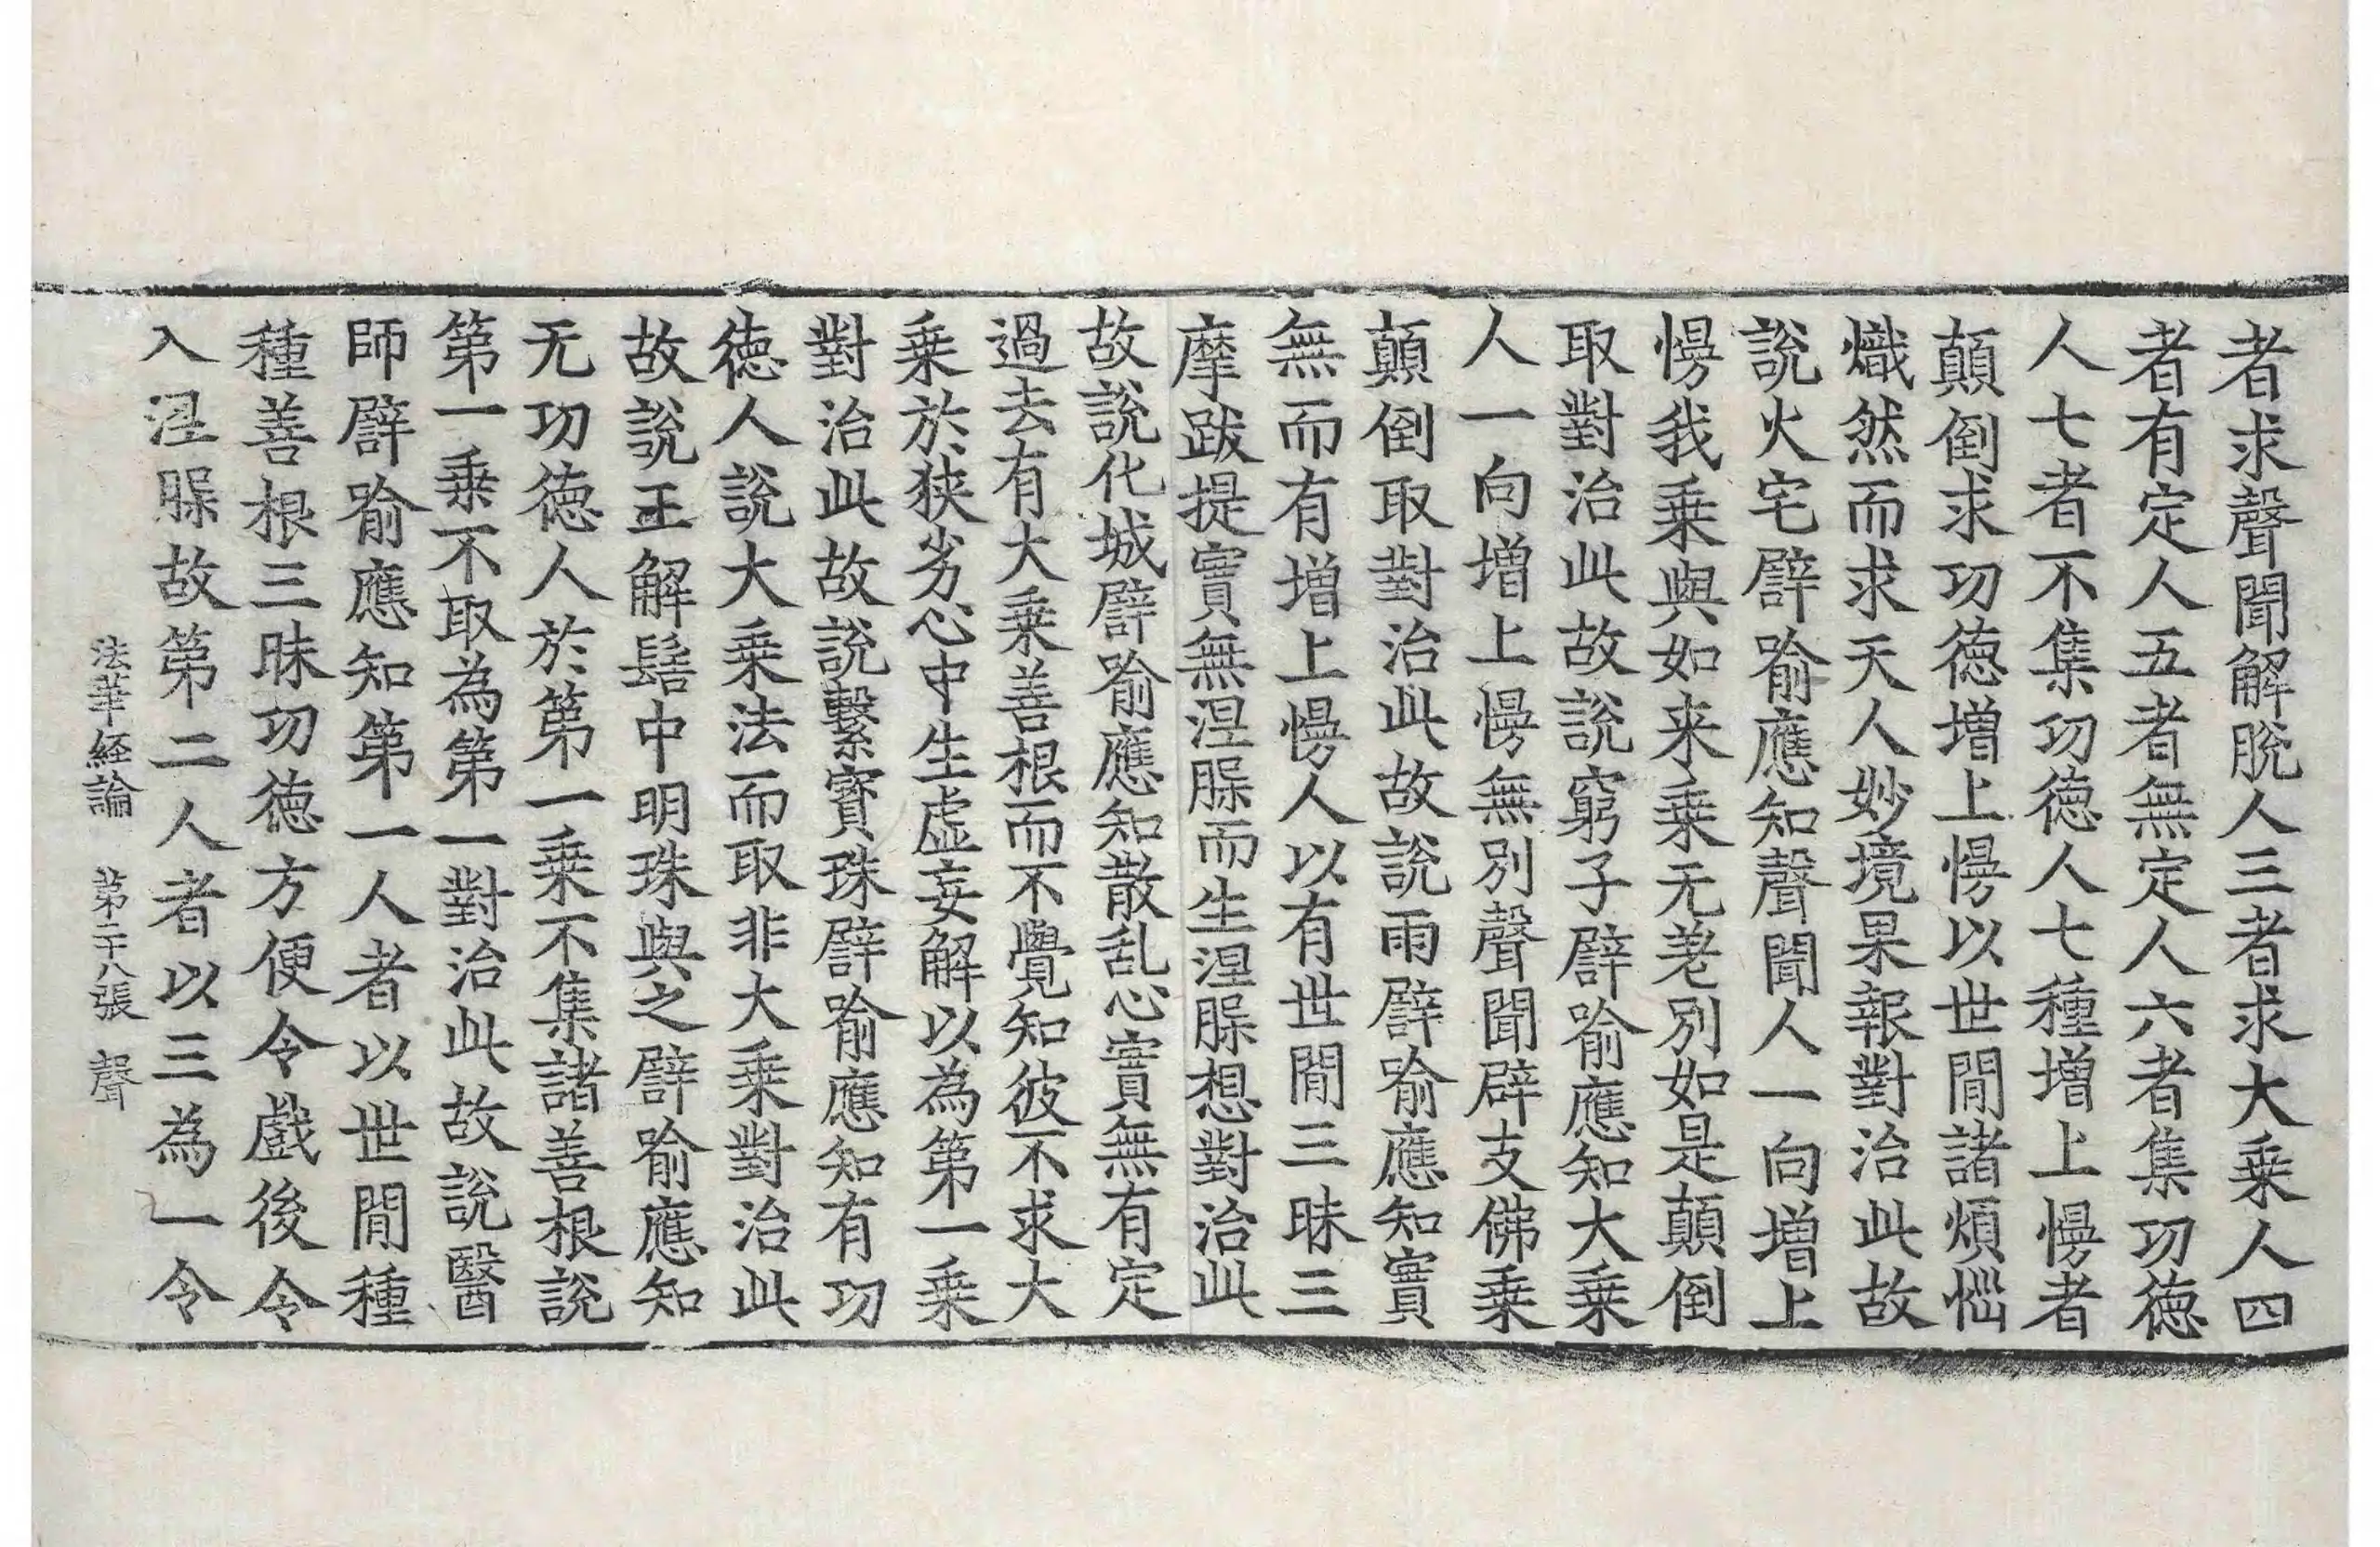 者求聲聞解脫人三者求大乗人四
者有定人五者無定人六者集功徳
人七者不集功徳人七種増上慢者
顛倒求功徳増上慢以世間諸煩惱
熾然而求天人妙境果報對治此故
說火宅譬喻應知聲聞人一向増上
慢我乗與如来乗无差別如是顛倒
取對治此故說窮子譬喻應知大乗
人一向増上慢無別聲聞辟支佛乗
顛倒取對治此故說雨譬喻應知實
無而有増上慢人以有世間三昧三
摩跋提實無涅槃而生涅槃想對治此
故說化城譬喻應知散乱心實無有定
過去有大乗善根而不覺知彼不求大
乗於狹劣心中生虛妄解以為第一乗
對治此故說繫寶珠譬喻應知有功
徳人說大乗法而取非大乗對治此
故說王解髻中明珠與之譬喻應知
无功徳人於第一乗不集諸善根說
第一乗不取為第一對治此故說醫
師譬喻應知第一人者以世間種
種善根三昧功徳方便令戲後令
入涅槃故第二人者以三為一令
法華経論　第二十八張　聲